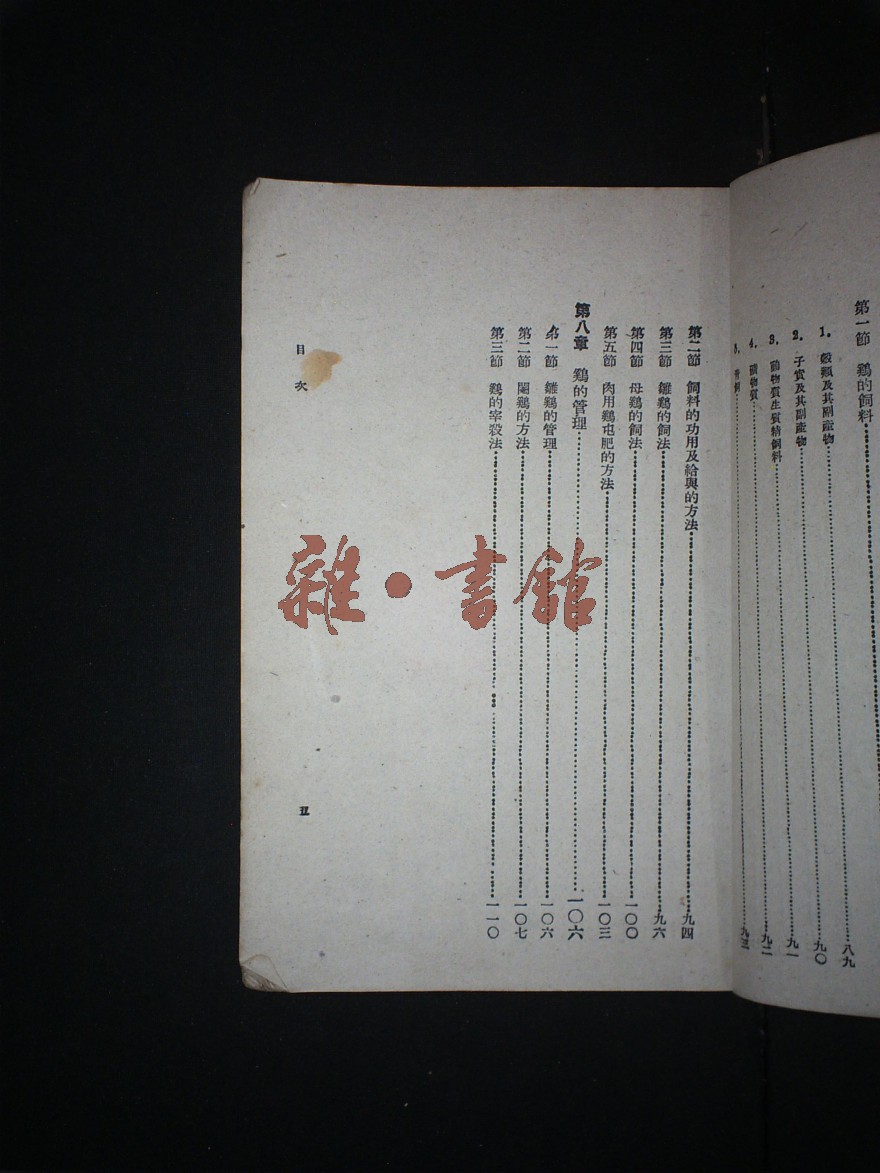 第一節　鷄的飼料……
1. 穀類及其副產物……八九
2. 子實及其副產物……九〇
3. 動物質生質精飼料……九一
4. 礦物質……九二
5. 青飼……九三
第二節　飼料的功用及給與的方法……九四
第三節　雛鷄的飼法……九六
第四節　母鷄的飼法……一〇〇
第五節　肉用鷄屯肥的方法……一〇三
第八章　鷄的管理……一〇六
第一節　雛鷄的管理……一〇六
第二節　閹鷄的方法……一〇七
第三節　鷄的宰殺法……一一〇
目次
五
雜·書館